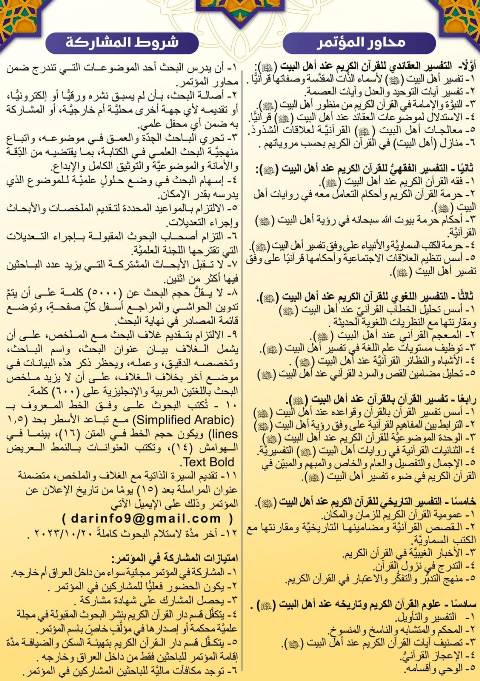 محاور المؤتمر
أوّلًا- التفسير العقائدي للقرآن الكريم عند أهل البيت (ﷺ):
١- تفسير أهل البيت (ﷺ) لأسماء الذّات المقدّسة وصفاتها قرآنيًّا.
٢- تفسير آيات التوحيد والعدل وآيات العصمة.
٣- النبوّة والإمامة في القرآن الكريم من منظور أهل البيت (ﷺ).
٤- الاستدلال لموضوعات العقائد عند أهل البيت (ﷺ) قرآنيًّا.
٥- معالجات أهل البيت (ﷺ) القرآنيّة لعلاقات الشّذوذ.
٦- منازل (أهل البيت) في القرآن الكريم بحسب مروياتهم .
ثانيًا - التفسير الفقهيّ للقرآن الكريم عند أهل البيت (ﷺ).
١- فقه القرآن الكريم عند أهل البيت (ﷺ).
٢- حرمة القرآن الكريم وأحكام التعامل معه في روايات أهل
البيت (ﷺ).
٣- أحكام حرمة بيوت الله سبحانه في رؤية أهل البيت (ﷺ)
القرآنيّة.
٤- حرمة الكتب السماويّة والأنبياء على وفق تفسير أهل البيت (ﷺ).
٥- أسس تنظيم العلاقات الاجتماعية وأحكامها قرآنيًا على وفق
تفسير أهل البيت (ﷺ).
ثالثًا - التفسير اللغوي للقرآن الكريم عند أهل البيت (ﷺ).
١- أسس تحليل الخطاب القرآنيّ عند أهل البيت (ﷺ)
ومقارنتها مع النظريات اللغوية الحديثة .
٢ - المعجم القرآني عند أهل البيت (ﷺ).
٣- توظيف مستويات علم اللغة في تفسير أهل البيت (ﷺ).
٤- الأشباه والنظائر القرآنيّة عند أهل البيت (ﷺ).
٥- تحليل مضامين القص والسرد القرآني عند أهل البيت (ﷺ).
رابعًا - تفسير القرآن بالقرآن عند أهل البيت (ﷺ) .
١- أسس تفسير القرآن بالقرآن وقواعده عند أهل البيت (ﷺ).
٢- الترابط بين المفاهيم القرآنية على وفق رؤية أهل البيت (ﷺ)
٣- الوحدة الموضوعيّة للقرآن الكريم عند أهل البيت (ﷺ).
٤- الثنائيات القرآنية في روايات أهل البيت (ﷺ) التفسيريّة.
٥- الإجمال والتفصيل والعام والخاص والمبهم والمبيّن في
القرآن الكريم في ضوء تفسير أهل البيت (ﷺ).
خامسًا - التفسير التاريخي للقرآن الكريم عند أهل البيت (ﷺ) .
١- عمومية القرآن الكريم للزمان والمكان.
٢- القصص القرآنيّة ومضامينها التاريخيّة ومقارنتها مع
الكتب السماويّة.
٣- الأخبار الغيبيّة في القرآن الكريم.
٤- التدرج في نزول القرآن.
٥- منهج التدبّر والتفكّر والاعتبار في القرآن الكريم.
سادسًا - علوم القرآن الكريم وتاريخه عند أهل البيت (ﷺ) .
١- التفسير والتأويل.
٢- المحكم والمتشابه والناسخ والمنسوخ.
٣- تصنيف آيات القرآن الكريم عند أهل البيت (ﷺ).
٤- الإعجاز القرآنيّ.
٥- الوحي وأقسامه.
شروط المشاركة
١- أن يدرس البحث أحد الموضوعات التي تندرج ضمن
محاور المؤتمر.
٢- أصالة البحث، بأن لم يسبق نشره ورقيًّا أو إلكترونيًّا،
أو تقديمه لأي جهة أخرى محليّة أم خارجيّة، أو المشاركة
به ضمن أي محفل علمي.
٣- تحري الباحث الجدّة والعمق في موضوعه، واتباع
منهجيّة البحث العلمي في الكتابة، بما يقتضيه من الدّقة
والأمانة والموضوعيّة والتوثيق الكامل والإبداع.
٤- إسهام البحث في وضع حلولٍ علميّة للموضوع الذي
يدرسه بقدر الإمكان.
٥- الالتزام بالمواعيد المحددة لتقديم الملخصات والأبحاث
وإجراء التعديلات.
٦- التزام أصحاب البحوث المقبولة بإجراء التعديلات
التي تقترحها اللجنة العلميّة.
٧- لا تقبل الأبحاث المشتركة التي يزيد عدد الباحثين
فيها أكثر من اثنين.
٨- لا يقلّ حجم البحث عن (٥٠٠٠) كلمة على أن يتمّ
تدوين الحواشي والمراجع أسفل كلّ صفحةٍ، وتوضع
قائمة المصادر في نهاية البحث.
٩- الالتزام بتقديم غلاف البحث مع الملخص، على أن
يشمل الغلاف بيان عنوان البحث، واسم الباحث،
وتخصصه الدقيق، وعمله، ويحظر ذكر هذه البيانات في
موضع آخر بخلاف الغلاف، على أن لا يزيد ملخص
البحث باللغتين العربية والإنجليزية على (٦٠٠) كلمة.
١٠ - تُكتب البحوث على وفق الخط المعروف بـ
(Simplified Arabic) مع تباعد الأسطر بحد (١,٥
lines) ويكون حجم الخط في المتن (١٦)، بينما في
الهوامش (١٤)، وتكتب العنوانات بالنمط العريض
.Text Bold
١١- تقديم السيرة الذاتية مع الغلاف والملخص، متضمنة
عنوان المراسلة بعد (١٥) يومًا من تاريخ الإعلان عن
المؤتمر وذلك على الإيميل الآتي
( darinfo9@gmail.com )
١٢- آخر مدّة لاستلام البحوث كاملةً ٢٠٢٣/١٠/٢٠ .
امتيازات المشاركة في المؤتمر:
١- المشاركة في المؤتمر مجانية سواء من داخل العراق أم خارجه.
٢- يكون الحضور فعليًّا للمشاركين في المؤتمر .
٣- يحصل المشارك على شهادة مشاركة
٤- يتكفّل قسم دار القرآن الكريم بنشر البحوث المقبولة في مجلة
علميّة محكمة أو إصدارها في مؤلّفٍ خاصّ باسم المؤتمر.
٥- يتكفّل قسم دار القرآن الكريم بتهيئة السكن والضيافة مدّة
إقامة المؤتمر للباحثين فقط من داخل العراق وخارجه .
٦- توجد مكافآت ماليّة للباحثين المشاركين في المؤتمر.